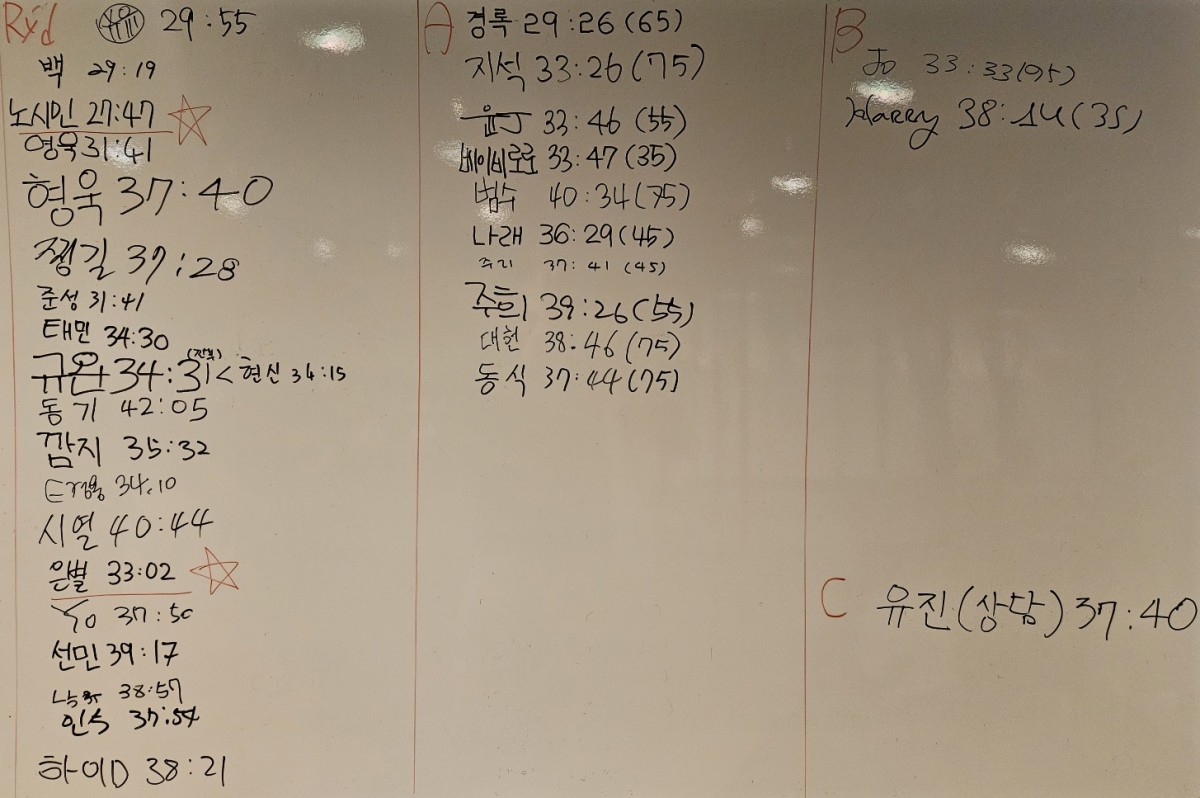 Rxd 29:55
백 29:19
노시민 27:47
영욱 31:41
형욱 37:40
쩽길 37:28
준성 31:41
태민 34:30
규완 34:31 < 현신 34:15
동기 42:05
깜지 35:32
34.10
시열 40:44
은별 33:02
Yo 37:50
선민 39:17
38:57
인수 37:54
하이D 38:21
A
경록 29:26 (65)
지석 33:26 (75)
윤J 33:46 (55)
베이비로로 33:47 (35)
범수 40:34 (75)
나래 36:29 (45)
주리 37:41 (45)
주희 39:26 (55)
대헌 38:46 (75)
동식 37:44 (75)
B
Jo 33:33 (95)
Harry 38:14 (35)
C 유진(상담) 37:40